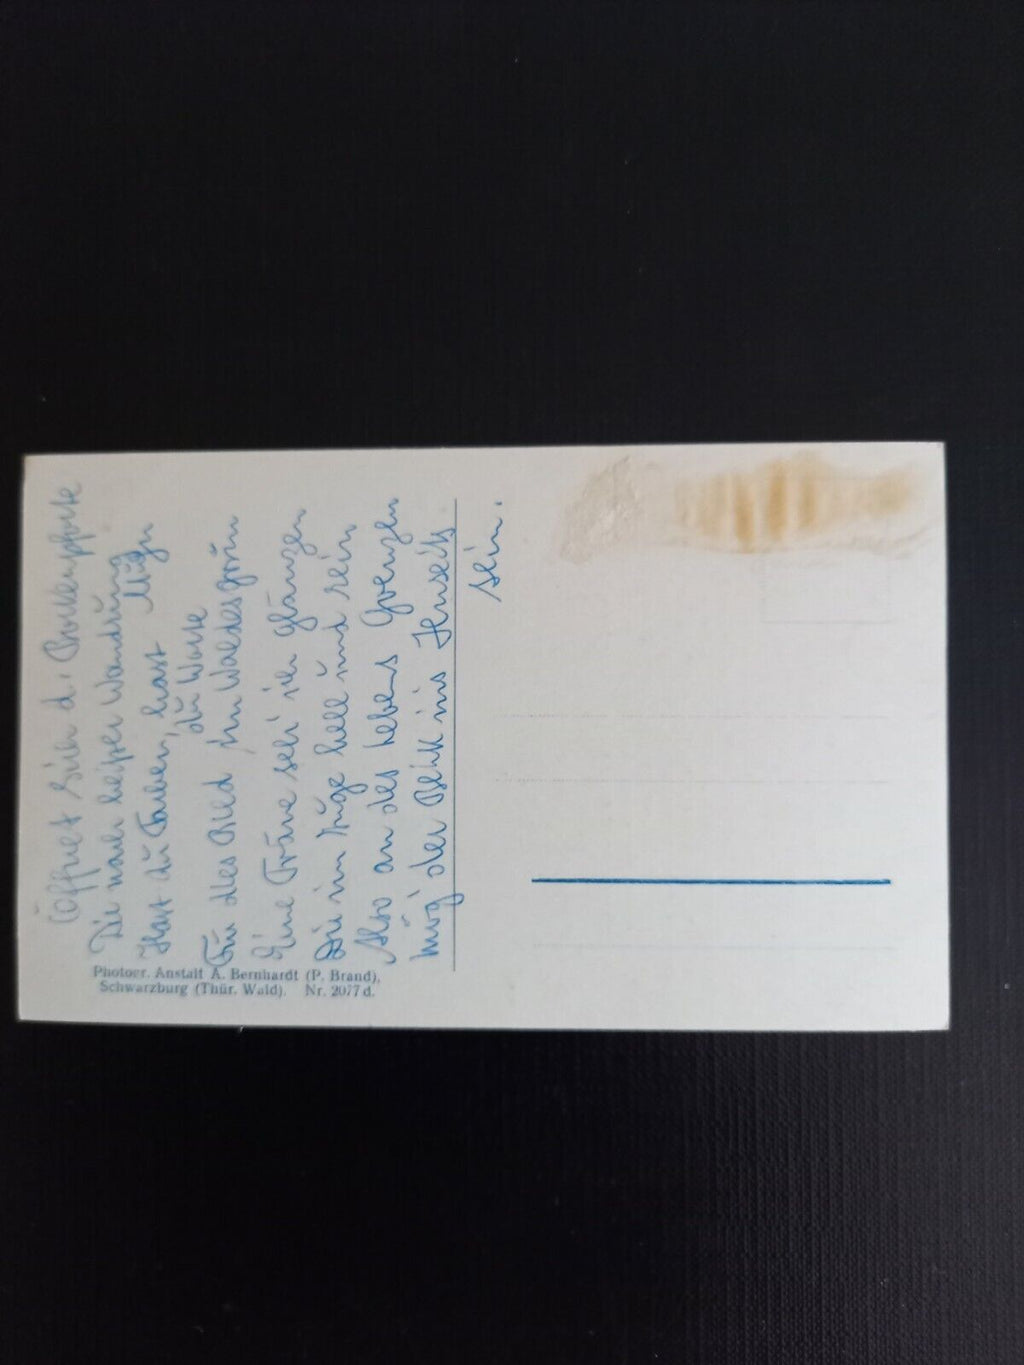 Öffnet sich d. Brockenpforte
Die nach heißer Wandrung
Hast du Farben, hast
du Worte
Für dies Bild im Waldesgrün
Eine Träne seh' ich glänzen
Die im Auge hell und rein
Also an des Lebens Grenzen
mög' der Blick ins Jenseits
sein.
Photogr. Anstalt A. Bernhardt (P. Brand),
Schwarzburg (Thür. Wald). Nr. 2077 d.